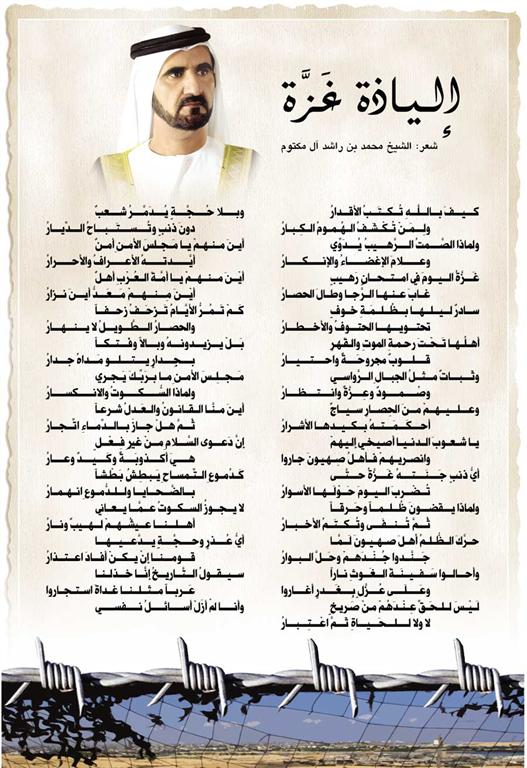 إلياذة غَزَّة
شعر: الشيخ محمد بن راشد آل مكتوم
كيف باللَّهِ تُكتَبُ الأقدارُ
ولمَنْ تُكْشَفُ الهمومُ الكِبارُ
ولماذا الصَّمتُ الرَّهيبُ يُدَوِّي
وعلامَ الإغضاءُ والإنكارُ
غَزَّةُ اليومَ في امتحانٍ رَهيبٍ
غابَ عنها الرَّجا وطالَ الحصارُ
سادرٌ ليلها بظُلمةِ خوفٍ
تحتويها الحتوفُ والأخطارُ
أهلُها تحتَ رحمةِ الموتِ والقهرِ
قلوبٌ مجروحةٌ واحتيارُ
وثَباتٌ مثلُ الجبالِ الرَّواسي
وصُمودٌ وعِزَّةٌ وانتظارُ
وعليهمْ منَ الحِصارِ سياجٌ
أحكمَتهُ بكيدها الأشرارُ
يا شعوبَ الدنيا أصيخي إليهمْ
وانصريهمْ فأهلُ صهيونَ جاروا
أيُّ ذنبٍ جَنَتهُ غَزَّةُ حتَّى
تُضرَبَ اليومَ حَوْلَها الأسوارُ
ولماذا يقضونَ ظُلماً وحَرقاً
ثُمَّ تُنفَى وتُكتَمُ الأخبارُ
حرَّكَ الظُلمُ أهلَ صهيونَ لَمَّا
جَنَّدوا جُندَهُمْ وحَلَّ البوارُ
وأحالوا سَفينةَ الغوثِ ناراً
وعلى عُزَّلٍ بِغَدرٍ أغاروا
لَيْسَ للحقِّ عِنْدَهُمْ مِنْ صَريخٍ
لا ولا للحياةِ ثَمَّ اعتِبارُ
وبلا حُجَّةٍ يُدَمَّرُ شعبٌ
دون ذنبٍ وتُستباحُ الدِّيارُ
أينَ منهمْ يا مجلسَ الأمنِ أمنٌ
أيَّدتهُ الأعرافُ والأحرارُ
أينَ منهمْ يا أمَّةَ العُرْبِ أهلٌ
أينَ منهمْ مَعَدُّ أينَ نزارُ
كَمْ تَمُرُّ الأيَّامُ تَزحَفُ زَحفاً
والحصارُ الطَّويلُ لا ينهارُ
بَلْ يَزيدونهُ وبالاً وفتكاً
بجدارٍ يتلو مَداهُ جدارُ
مَجلسَ الأمنِ ما برَبِّكَ يَجري
ولماذا السُّكوتُ والانكسارُ
أينَ منَّا القانونُ والعَدلُ شَرعاً
ثُمَّ هَل جازَ بالدِّماءِ اتِّجارُ
إنَّ دَعوى السَّلامِ مِنْ غيرِ فِعْلٍ
هيَ أُكذوبَةٌ وكَيدٌ وعارُ
كَدُموعِ التِّمساحِ يَبطِشُ بَطشاً
بالضَّحايا وللدُّموعِ انهمارُ
لا يجوزُ السكوتُ عمَّا يعاني
أهلنا عيشُهمْ لهيبٌ ونارُ
أيُّ عُذرٍ وحجَّةٍ يدَّعيها
قومُنا إنْ يكنْ أفادَ اعتذارُ
سيقولُ التَّاريخُ إنَّا خَذلنا
عَرباً مثلنا غداةَ استجاروا
وأنا لم أزلْ أسائلُ نفسي